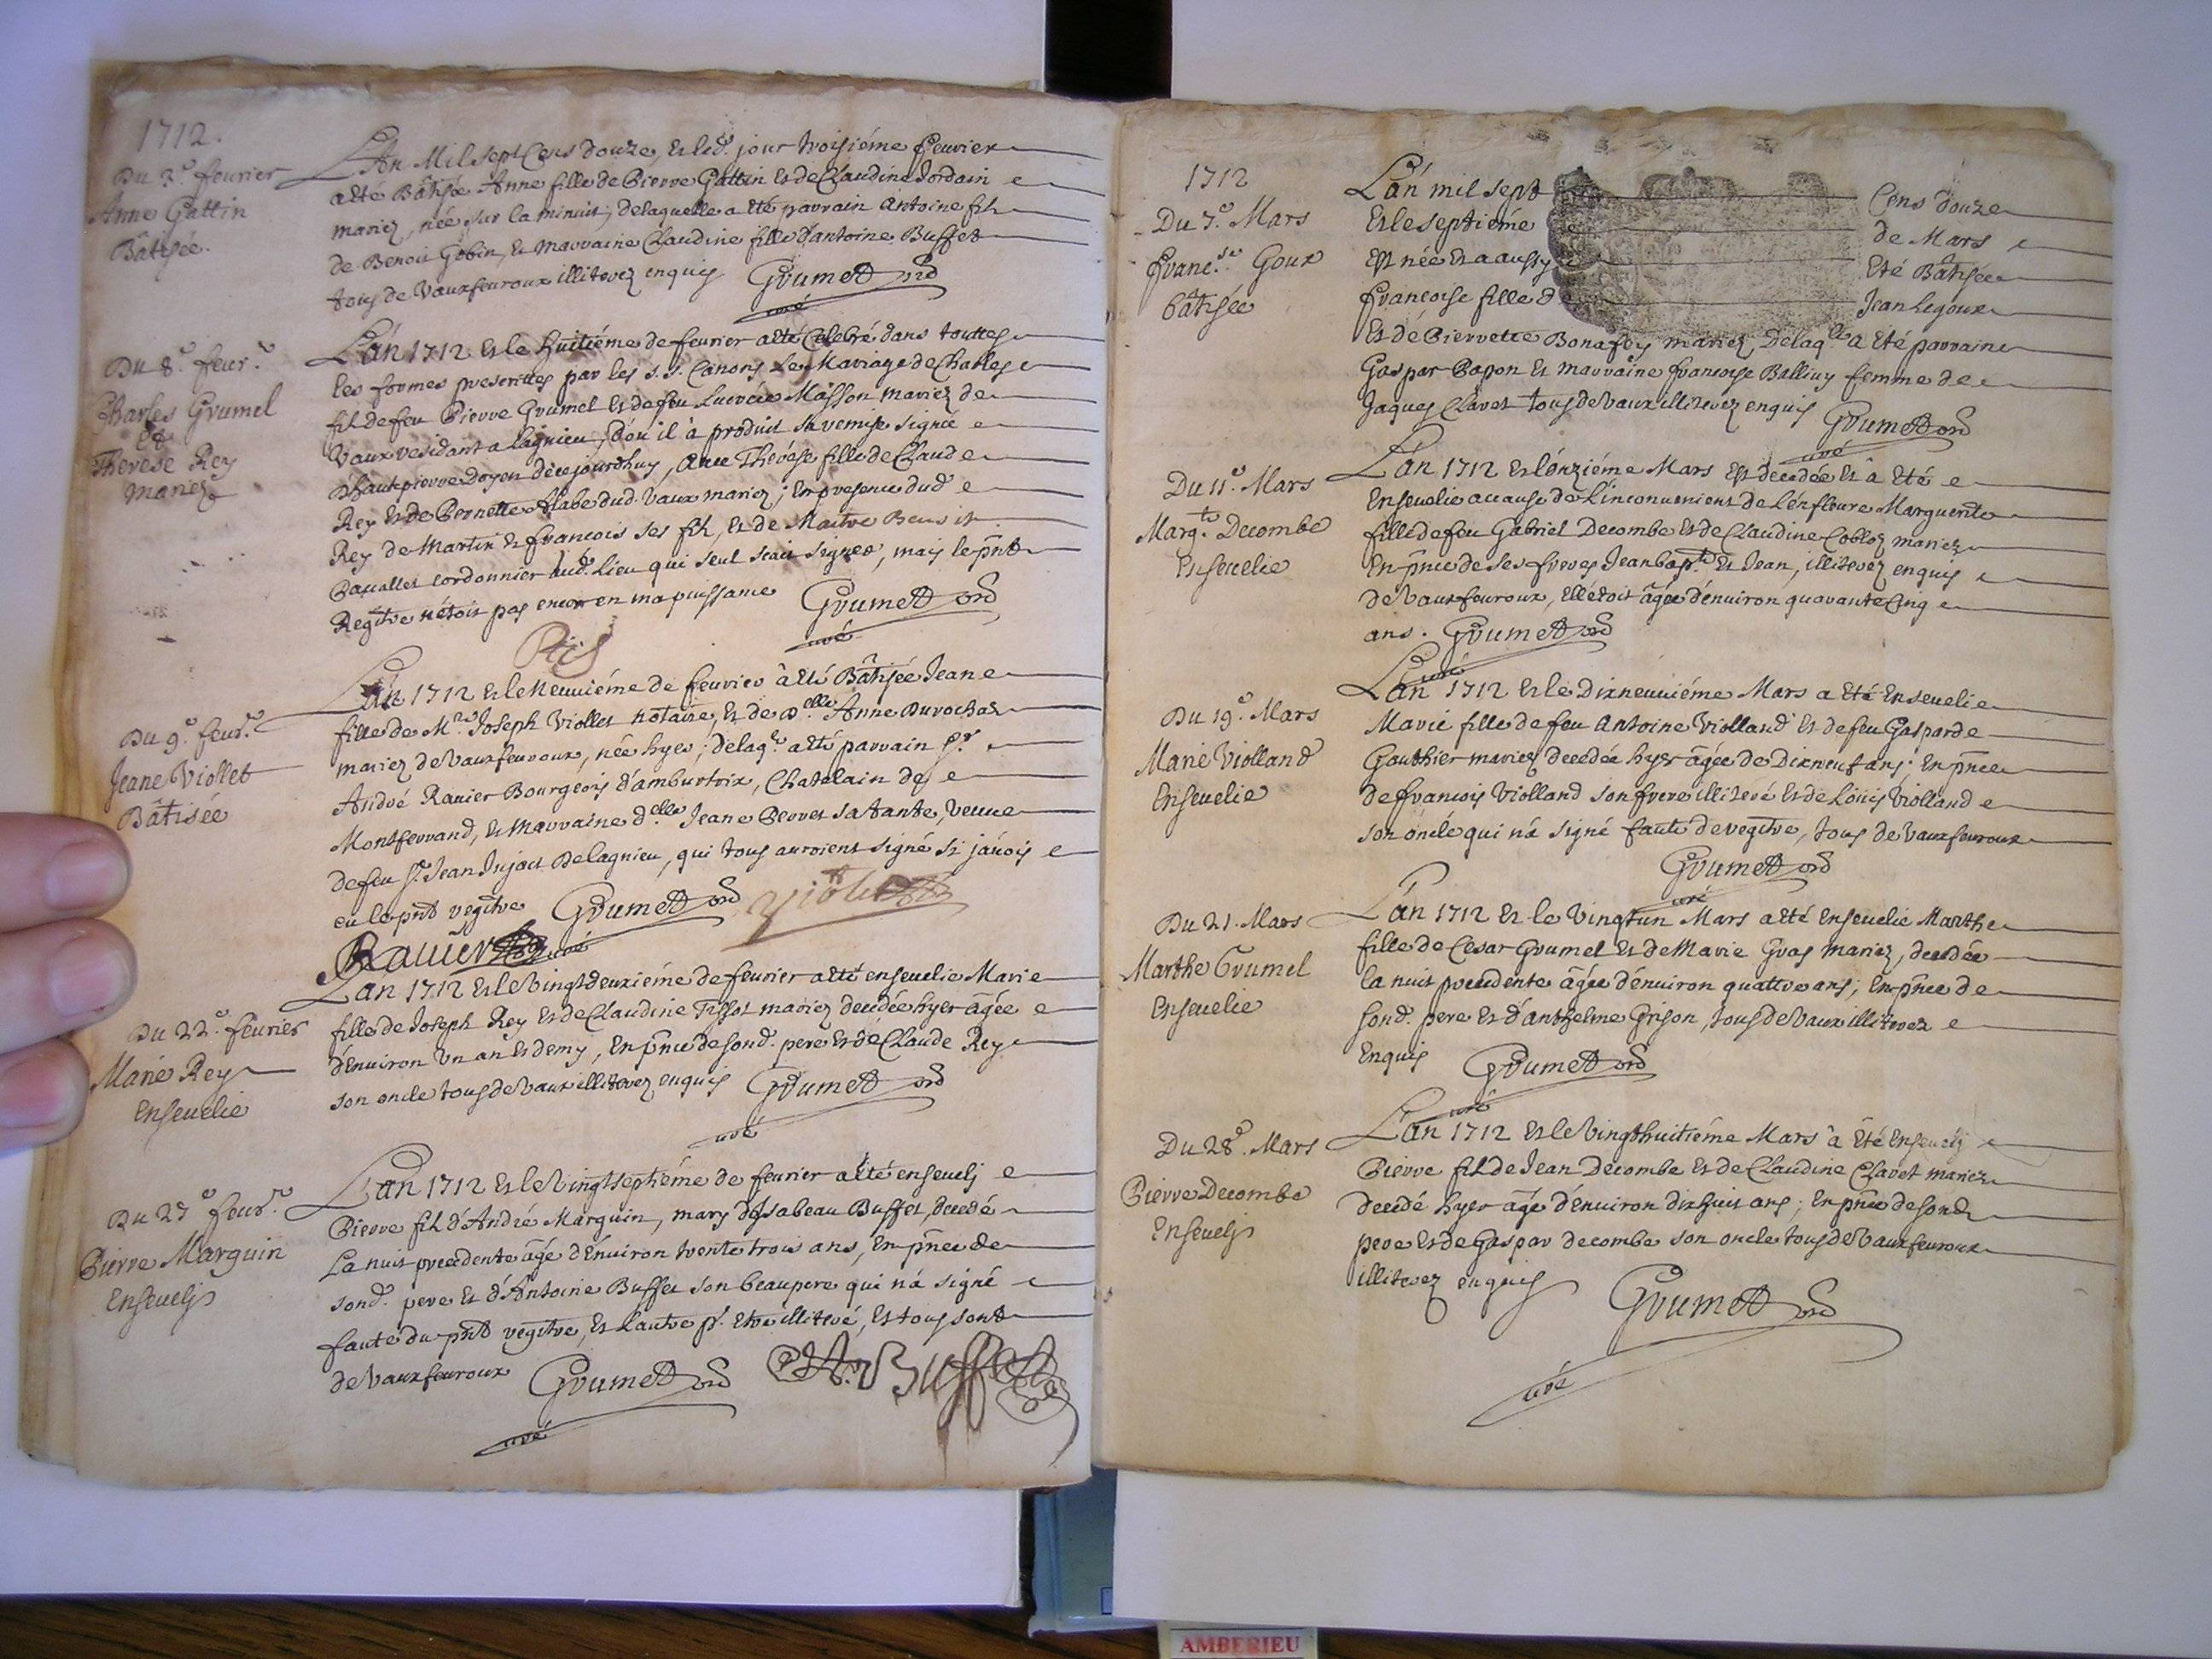 1712.
Du 3.e feurier
Anne Gattin
Bâtisée.
L'An Mil sept Cens douze, Et led. jour troisiéme feurier
a été Bâtisée Anne fille de Pierre Gattin Et de Claudine Jordain
mariez, née sur la minuit, delaquelle a été parrain Antoine fils
de Benoit Gobin, Et marraine Claudine fille d'antoine Buffet
tous de Vauxfeuroux illiterez enquis Grumet ord
curé
Du 8.e feur.r
Charles Grumel
Et
Therese Rey
mariez
L'an 1712 Et le huitiéme de feurier a été Celebré dans touttes
les formes prescrittes par les s.s. Canons Le Mariage de Charles
fils de feu Pierre Grumel Et de feu Lucréce Masson mariez de
Vaux residant a Lagnieu, d'ou il à produit sa remise signée
Dhautepierre doyen de cejourdhuy, avec Thérése fille de Claude
Rey Et de Pernette Alabe dud. Vaux mariez; En presence dud.
Rey de Martin Et francois ses fils, Et de Maitre Benoit
cordonnier aud. Lieu qui seul scait signer, mais le pnt
Regitre n'étoit pas encor en ma puissance Grumet ord
curé
Du 9.e feur.r
Jeane Viollet
Bâtisée
L'an 1712 Et le Neuuiéme de feurier à été Bâtisée Jeane
fille de M.re Joseph Viollet notaire, Et de D.elle Anne Durochat
mariez de Vauxfeuroux, née hyer; delaq.le a été parrain s.r
André Rauier Bourgeois d'amburtrix, Chatelain de
Montferrand, Et Marraine d.elle Jeane Perret sa tante, veuue
de feu s.r Jean Jujat De lagnieu, qui tous auroient signé si j'auois
eu le pnt regitre Grumet ord Viollet
Rauier curé
Du 22.e feurier
Marie Rey
Enseuelie
L'an 1712 Et le Vingtdeuxiéme de feurier a été enseuelie Marie
fille de Joseph Rey Et de Claudine Tissot mariez decedée hyer âgée
d'enuiron Un an Et demy, En pnce de sond. pere Et de Claude Rey
son oncle tous de Vaux illiterez enquis Grumet ord
curé
Du 27.e feur.r
Pierre Marguin
Enseuely
L'an 1712 Et le Vingtseptiéme de feurier a été enseuely
Pierre fils d'André Marguin, mary d'Isabeau Buffet, decedé
La nuit precedente âgé d'enuiron trente trois ans, En pnce de
sond. pere Et d'Antoine Buffet son beaupere qui n'a signé
faute du pnt regitre, Et l'autre p.r Etre illiteré, Et tous sont
de Vauxfeuroux Grumet ord A. Buffet
curé
1712
Du 7.e Mars
Franc.se Goux
bâtisée
L'an mil sept Cens douze
Et le septiéme de Mars
Est née Et a aussy Eté Bâtisée
francoise fille de Jean Legoux
Et de Pierrette Bonafoy mariez, Delaq.lle a Eté parraine
Gaspar Papon Et marraine francoise Balliuy femme de
Jaques Clavet tous de Vaux illiterez enquis Grumet ord
curé
Du 11.e Mars
Marg.te Decombe
Enseuelie
L'an 1712 Et l'ónziéme Mars Est decedée Et â Eté
Enseuelie acause de L'inconuenient de l'énfleure Marguerite
fille de feu Gabriel Decombe Et de Claudine Colloz mariez
En pnce de ses freres Jean bap.te Et Jean, illiterez enquis
de Vauxfeuroux, Elle étoit âgée d'enuiron quarante cinq
ans. Grumet ord
curé
Du 19.e Mars
Marie Violland
Enseuelie
L'an 1712 Et le Dixneuuiéme Mars a Eté Enseuelie
Marie fille de feu Antoine Violland Et de feu Gasparde
Gauthier mariez decedée hyer âgée de Dixneuf ans; En pnce
de francois Violland son frere illiteré Et de Loüis Violland
son oncle qui n'a signé faute de regitre, tous de Vauxfeuroux
Grumet ord
curé
Du 21. Mars
Marthe Grumel
Enseuelie
L'an 1712 Et le Vingtun Mars a Eté Enseuelie Marthe
fille de Cesar Grumel Et de Marie Gras mariez, decedée
la nuit precedente âgée d'énuiron quattre ans, En pnce de
sond. pere Et d'anthelme Grison, tous de Vaux illiterez
Enquis Grumet ord
curé
Du 28.e Mars
Pierre Decombe
Enseuely
L'an 1712 Et le Vingthuitiéme Mars à Eté Enseuely
Pierre fils de Jean Decombe Et de Claudine Clavet mariez
decedé hyer âgé d'énuiron dixhuit ans; En pnce de sond.
pere Et de Gaspar decombe son oncle tous de Vauxfeuroux
illiterez enquis Grumet ord
curé
AMBERIEU